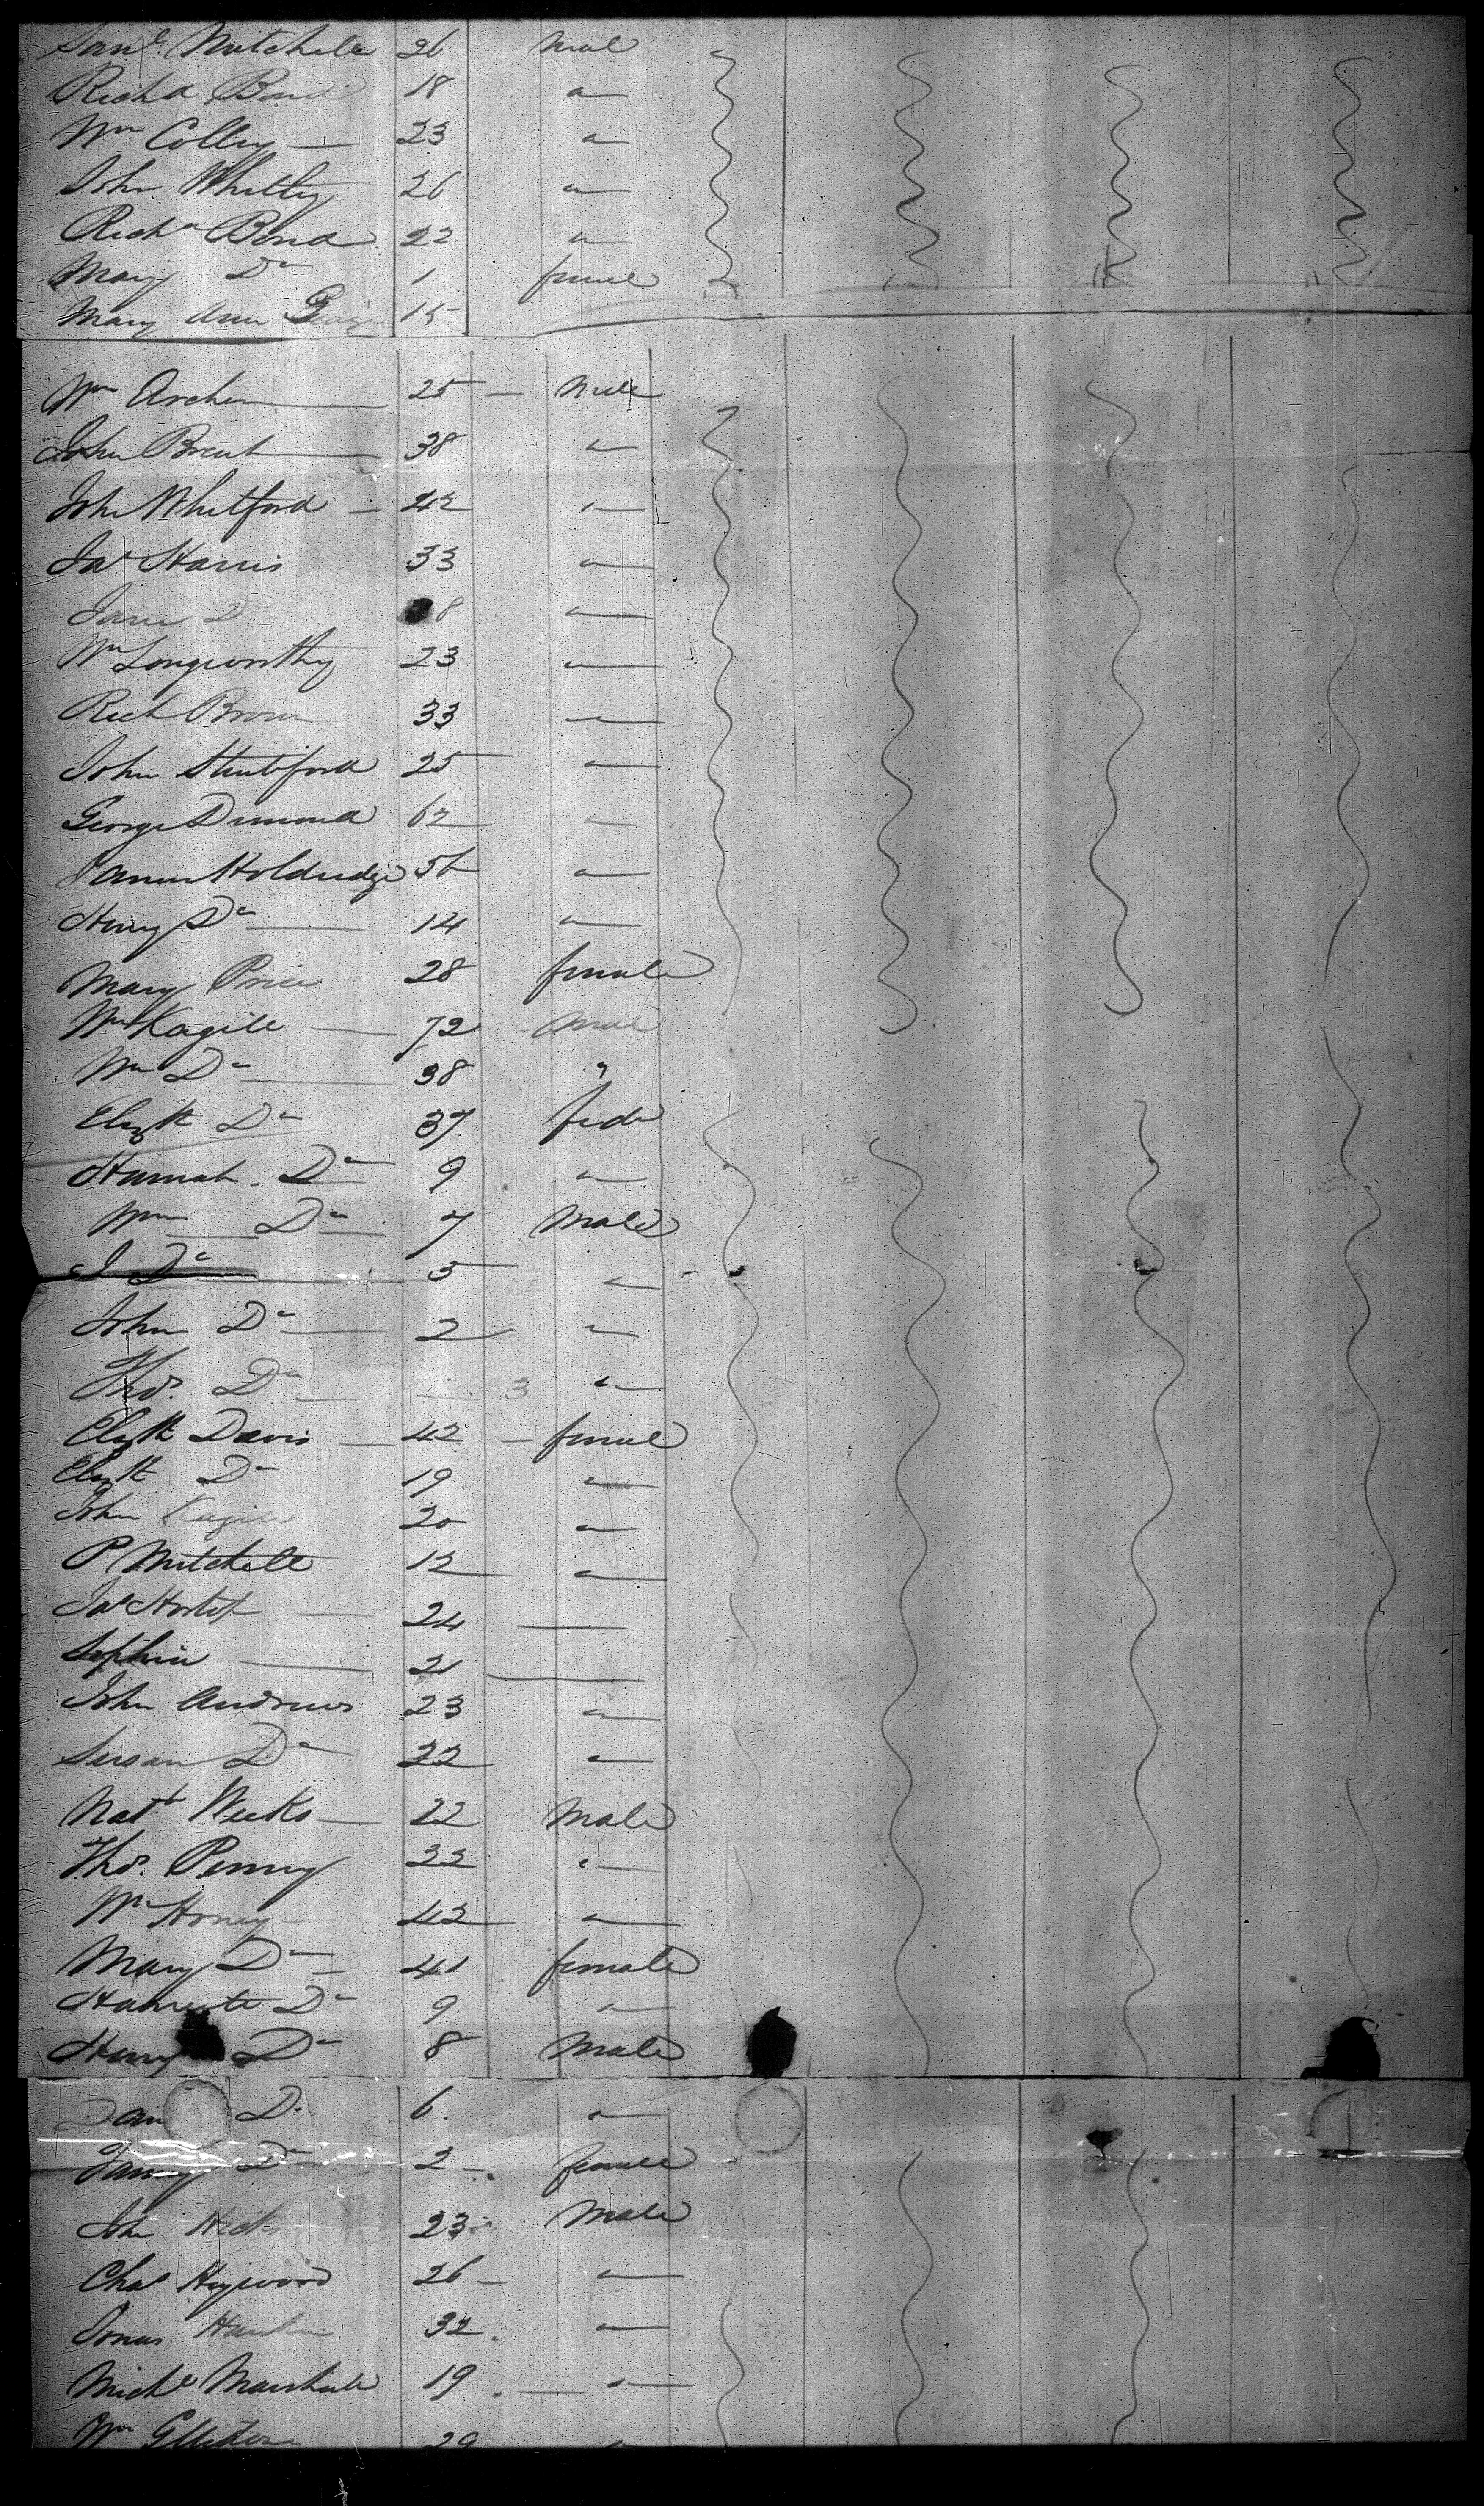 Saml. Mitchell 26 Male
Richd Bond 18 "
Wm Colley 23 "
John Whitty 26 "
Richd Bond 22 "
Mary Do 1 female
Mary Ann 15
Wm Archer 25 Male
John Brent 38 "
John Whitford 42 "
Jas Harris 33 "
Jane Do 8 "
Wm Longworthy 23 "
Rich Brown 33 "
John Stutiford 25 "
George Dimond 62 "
James Holdridge 56 "
Henry Do 14 "
Mary Price 28 female
Wm Kagill 72 Male
Wm Do 38 "
Elizth Do 37 fede
Hannah Do 9 "
Wm Do 7 Male
J Do 5 "
John Do 2 "
Thos. Do 3 "
Elizth Davis 42 female
Elizth Do 19 "
John Kagill 20 "
P Mitchell 12 "
Jas 24
Sophia 21
John Andrews 23 "
Susan Do 22 "
Natl Weeks 22 Male
Thos. Penny 22 "
Wm Honey 42 "
Mary Do 41 female
Harriette Do 9 "
Henry Do 8 Male
Dan Do 6. "
Fanny Do 2 female
John Hick 23 Male
Chas Heywood 26 "
Jonas 32. "
Michl Marshall 19. "
Wm 29 "